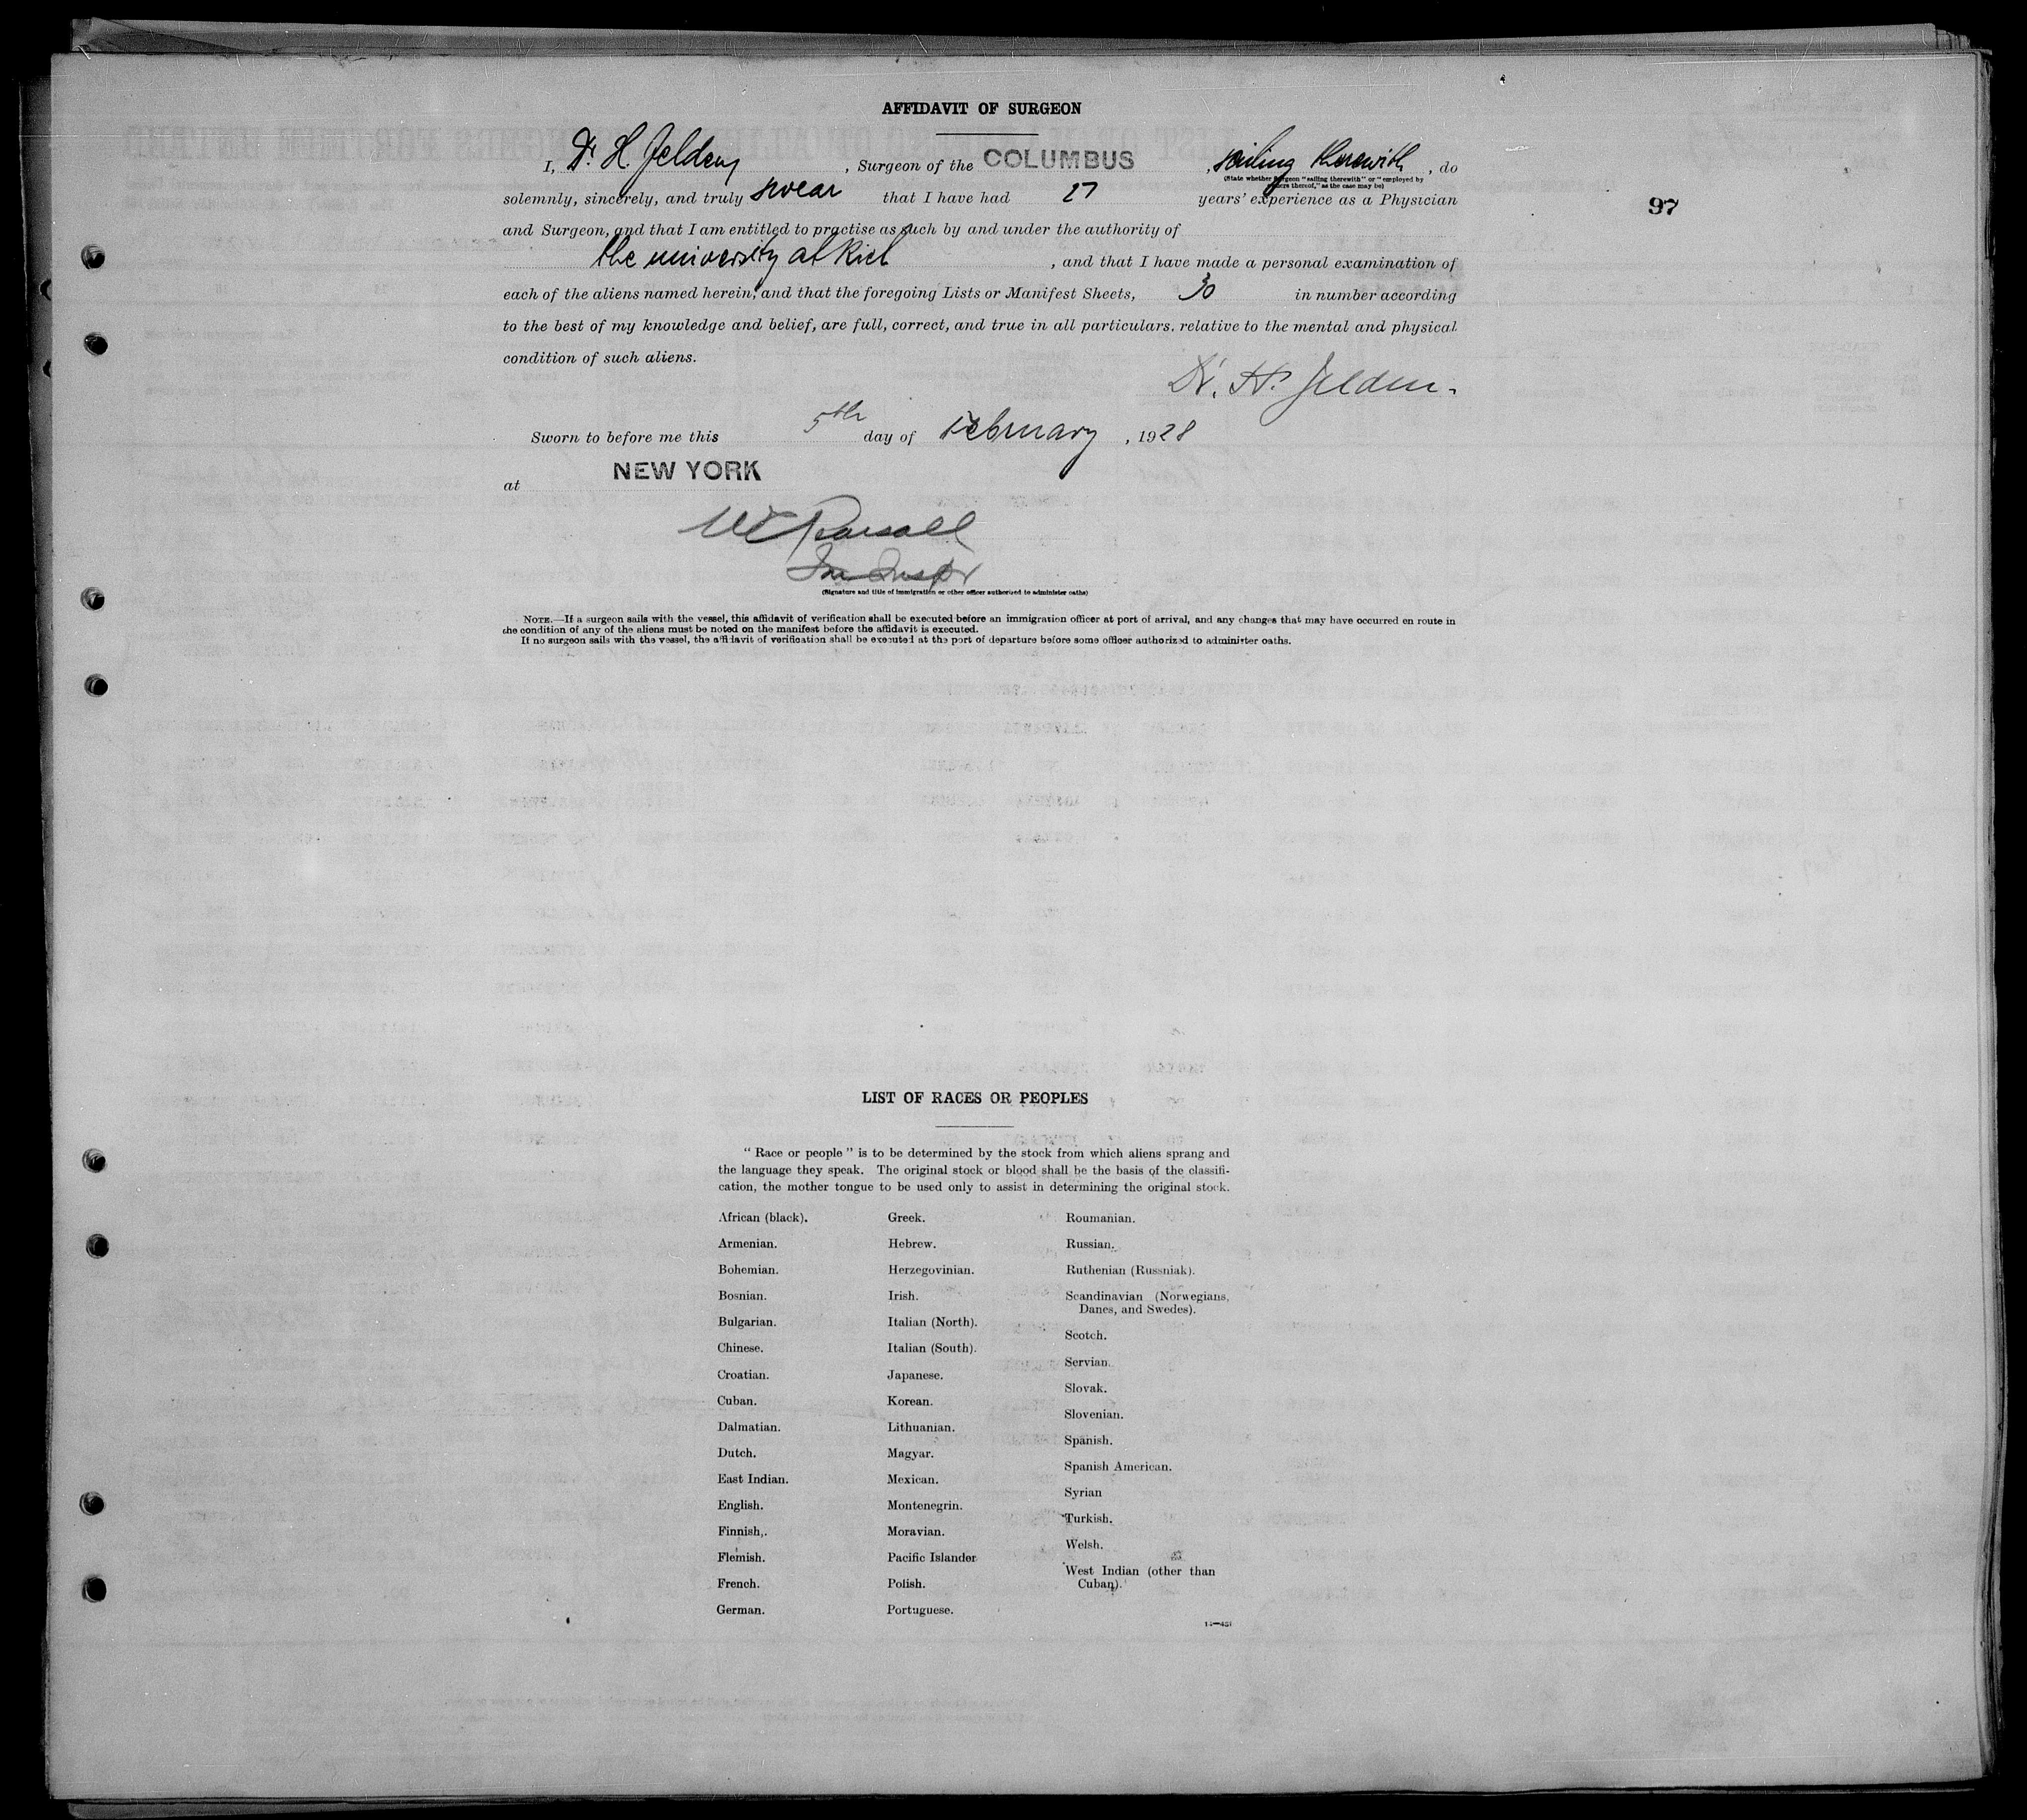 AFFIDAVIT OF SURGEON
I, Dr. H. Jelden, Surgeon of the COLUMBUS, sailing therewith, do
(State whether Surgeon "sailing therewith" or "employed by
owners thereof," as the case may be)
97
solemnly, sincerely, and truly swear that I have had 27 years' experience as a Physician
and Surgeon, and that I am entitled to practise as such by and under the authority of
the university at Kiel, and that I have made a personal examination of
each of the aliens named herein, and that the foregoing Lists or Manifest Sheets, 30 in number according
to the best of my knowledge and belief, are full, correct, and true in all particulars. relative to the mental and physical
condition of such aliens.
Dr. H. Jelden.
Sworn to before me this 5th day of February, 1928
at NEW YORK
Im Inspr
(Signature and title of immigration or other officer authorized to administer oaths)
NOTE.—If a surgeon sails with the vessel, this affidavit of verification shall be executed before an immigration officer at port of arrival, and any changes that may have occurred en route in
the condition of any of the aliens must be noted on the manifest before the affidavit is executed.
If no surgeon sails with the vessel, the affidavit of verification shall be executed at the port of departure before some officer authorized to administer oaths.
LIST OF RACES OR PEOPLES
"Race or people" is to be determined by the stock from which aliens sprang and
the language they speak. The original stock or blood shall be the basis of the classifi-
cation, the mother tongue to be used only to assist in determining the original stock.
African (black).
Armenian.
Bohemian.
Bosnian.
Bulgarian.
Chinese.
Croatian.
Cuban.
Dalmatian.
Dutch.
East Indian.
English.
Finnish.
Flemish.
French.
German.
Greek.
Hebrew.
Herzegovinian.
Irish.
Italian (North).
Italian (South).
Japanese.
Korean.
Lithuanian.
Magyar.
Mexican.
Montenegrin.
Moravian.
Pacific Islander
Polish.
Portuguese.
Roumanian.
Russian.
Ruthenian (Russniak).
Scandinavian (Norwegians,
Danes, and Swedes).
Scotch.
Servian.
Slovak.
Slovenian.
Spanish.
Spanish American.
Syrian
Turkish.
Welsh.
West Indian (other than
Cuban).